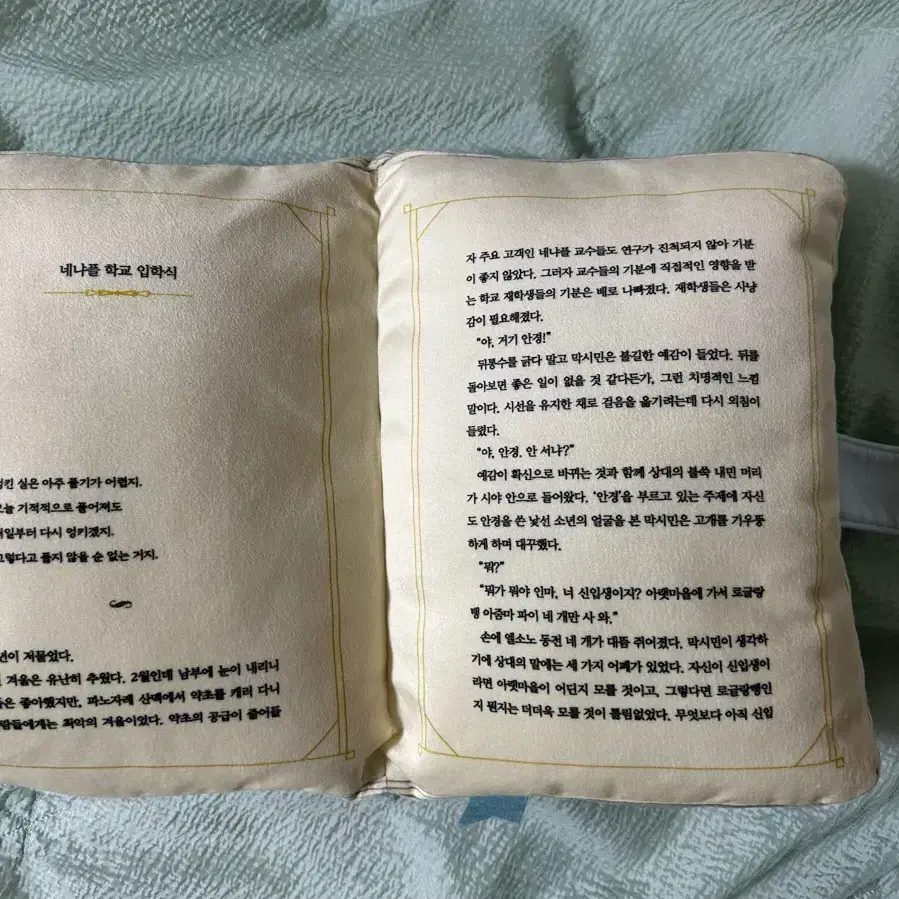 네냐플 학교 입학식
킨 실은 아주 풀기가 어렵지.
기적적으로 풀어져도
다시 엉키겠지.
풀지 않을 순 없는 거지.
저물었다.
겨울은 유난히 추웠다. 2월인데 남부에 눈이 내리니
좋아했지만, 파노자레 산맥에서 약초를 캐러 다니
최악의 겨울이었다. 약초의 공급이 줄어들
자 주요 고객인 네냐플 교수들도 연구가 진척되지 않아 기분
이 좋지 않았다. 그러자 교수들의 기분에 직접적인 영향을 받
는 학교 재학생들의 기분은 배로 나빠졌다. 재학생들은 사냥
감이 필요해졌다.
"야, 거기 안경!"
뒤통수를 긁다 말고 막시민은 불길한 예감이 들었다. 뒤를
돌아보면 좋은 일이 없을 것 같다든가, 그런 치명적인 느낌
말이다. 시선을 유지한 채로 걸음을 옮기려는데 다시 외침이
들렸다.
"야, 안경, 안 서냐?"
예감이 확신으로 바뀌는 것과 함께 상대의 불쑥 내민 머리
가 시야 안으로 들어왔다. '안경'을 부르고 있는 주제에 자신
도 안경을 쓴 낯선 소년의 얼굴을 본 막시민은 고개를 갸우뚱
하게 하며 대꾸했다.
"뭐?"
"뭐가 뭐야 인마, 너 신입생이지? 아랫마을에 가서 로글랑
뱅 아줌마 파이 네 개만 사 와."
손에 엘소노 동전 네 개가 대뜸 쥐어졌다. 막시민이 생각하
기에 상대의 말에는 세 가지 어폐가 있었다. 자신이 신입생이
라면 아랫마을이 어딘지 모를 것이고, 그렇다면 로글랑뱅인
지 뭔지는 더더욱 모를 것이 틀림없었다. 무엇보다 아직 신입